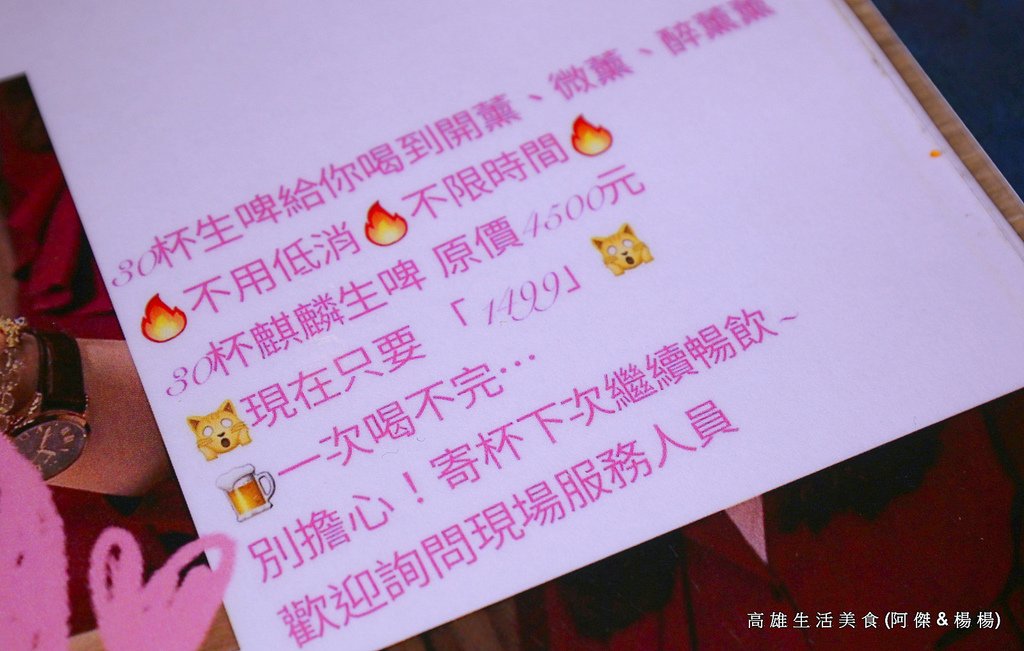 30杯生啤給你喝到開薰、微薰、醉薰薰
🔥不用低消🔥不限時間🔥
30杯麒麟生啤 原價4500元
🙀現在只要「1499」🙀
🍺一次喝不完…
別擔心！寄杯下次繼續暢飲~
歡迎詢問現場服務人員
高雄生活美食(阿傑&楊楊)